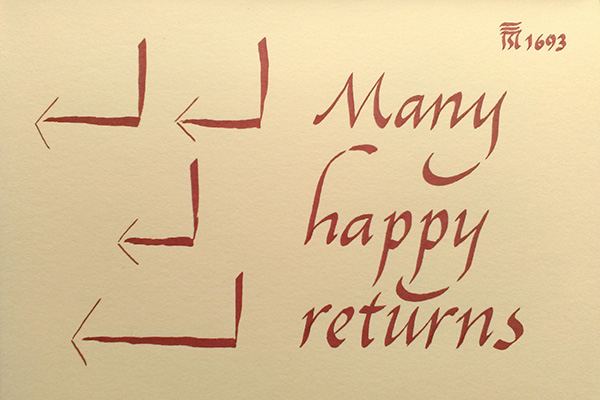 1693
Many
happy
returns